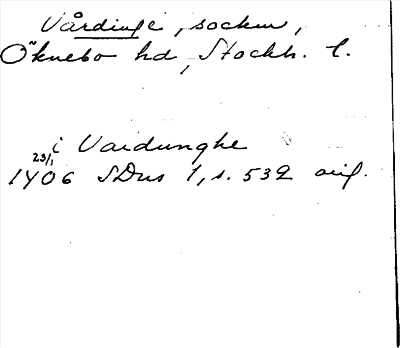 Vårdinge, socken,
Öknebo hd, Stockh. l.
i Vardunghe
23/1 1406 SDns 1, s. 532 orig.